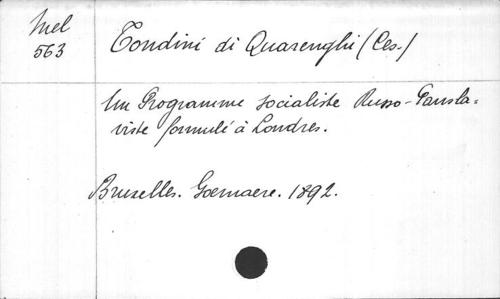 Mel
563
Tondini di Quarenghi (Ces.)
Un Programme socialiste Russo-Pansla=
viste formulé à Londres.
Bruxelles. Goemaere. 1892.